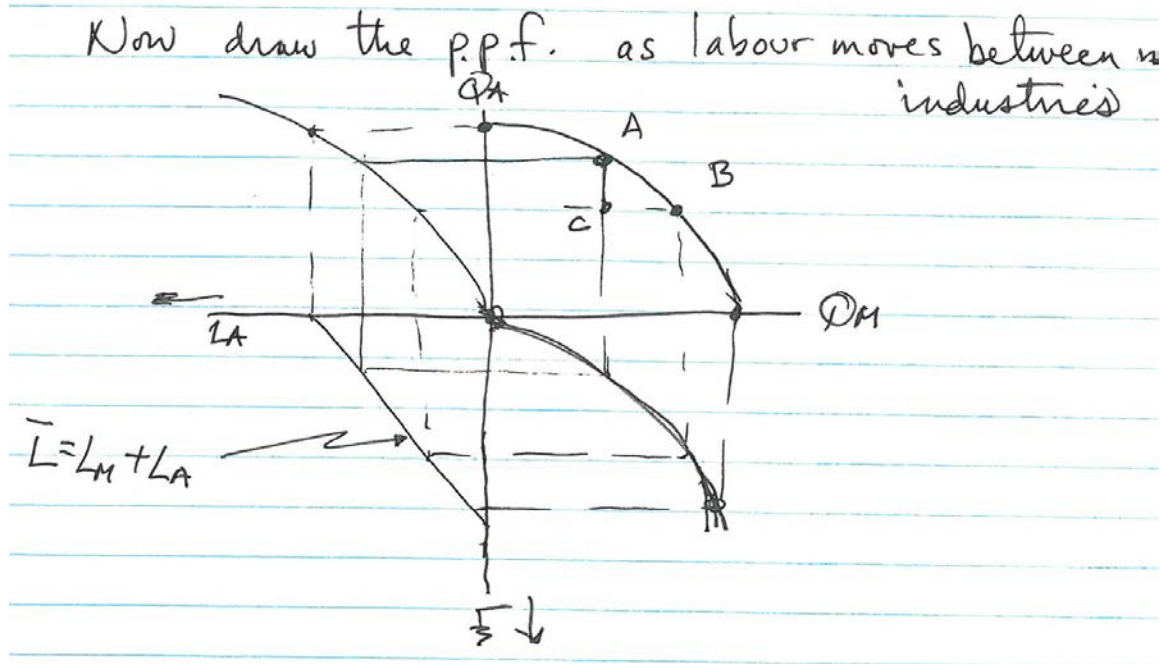 Now draw the p.p.f. as labour moves between
industries
QA
A
B
C
LA
QM
L̄=LM+LA